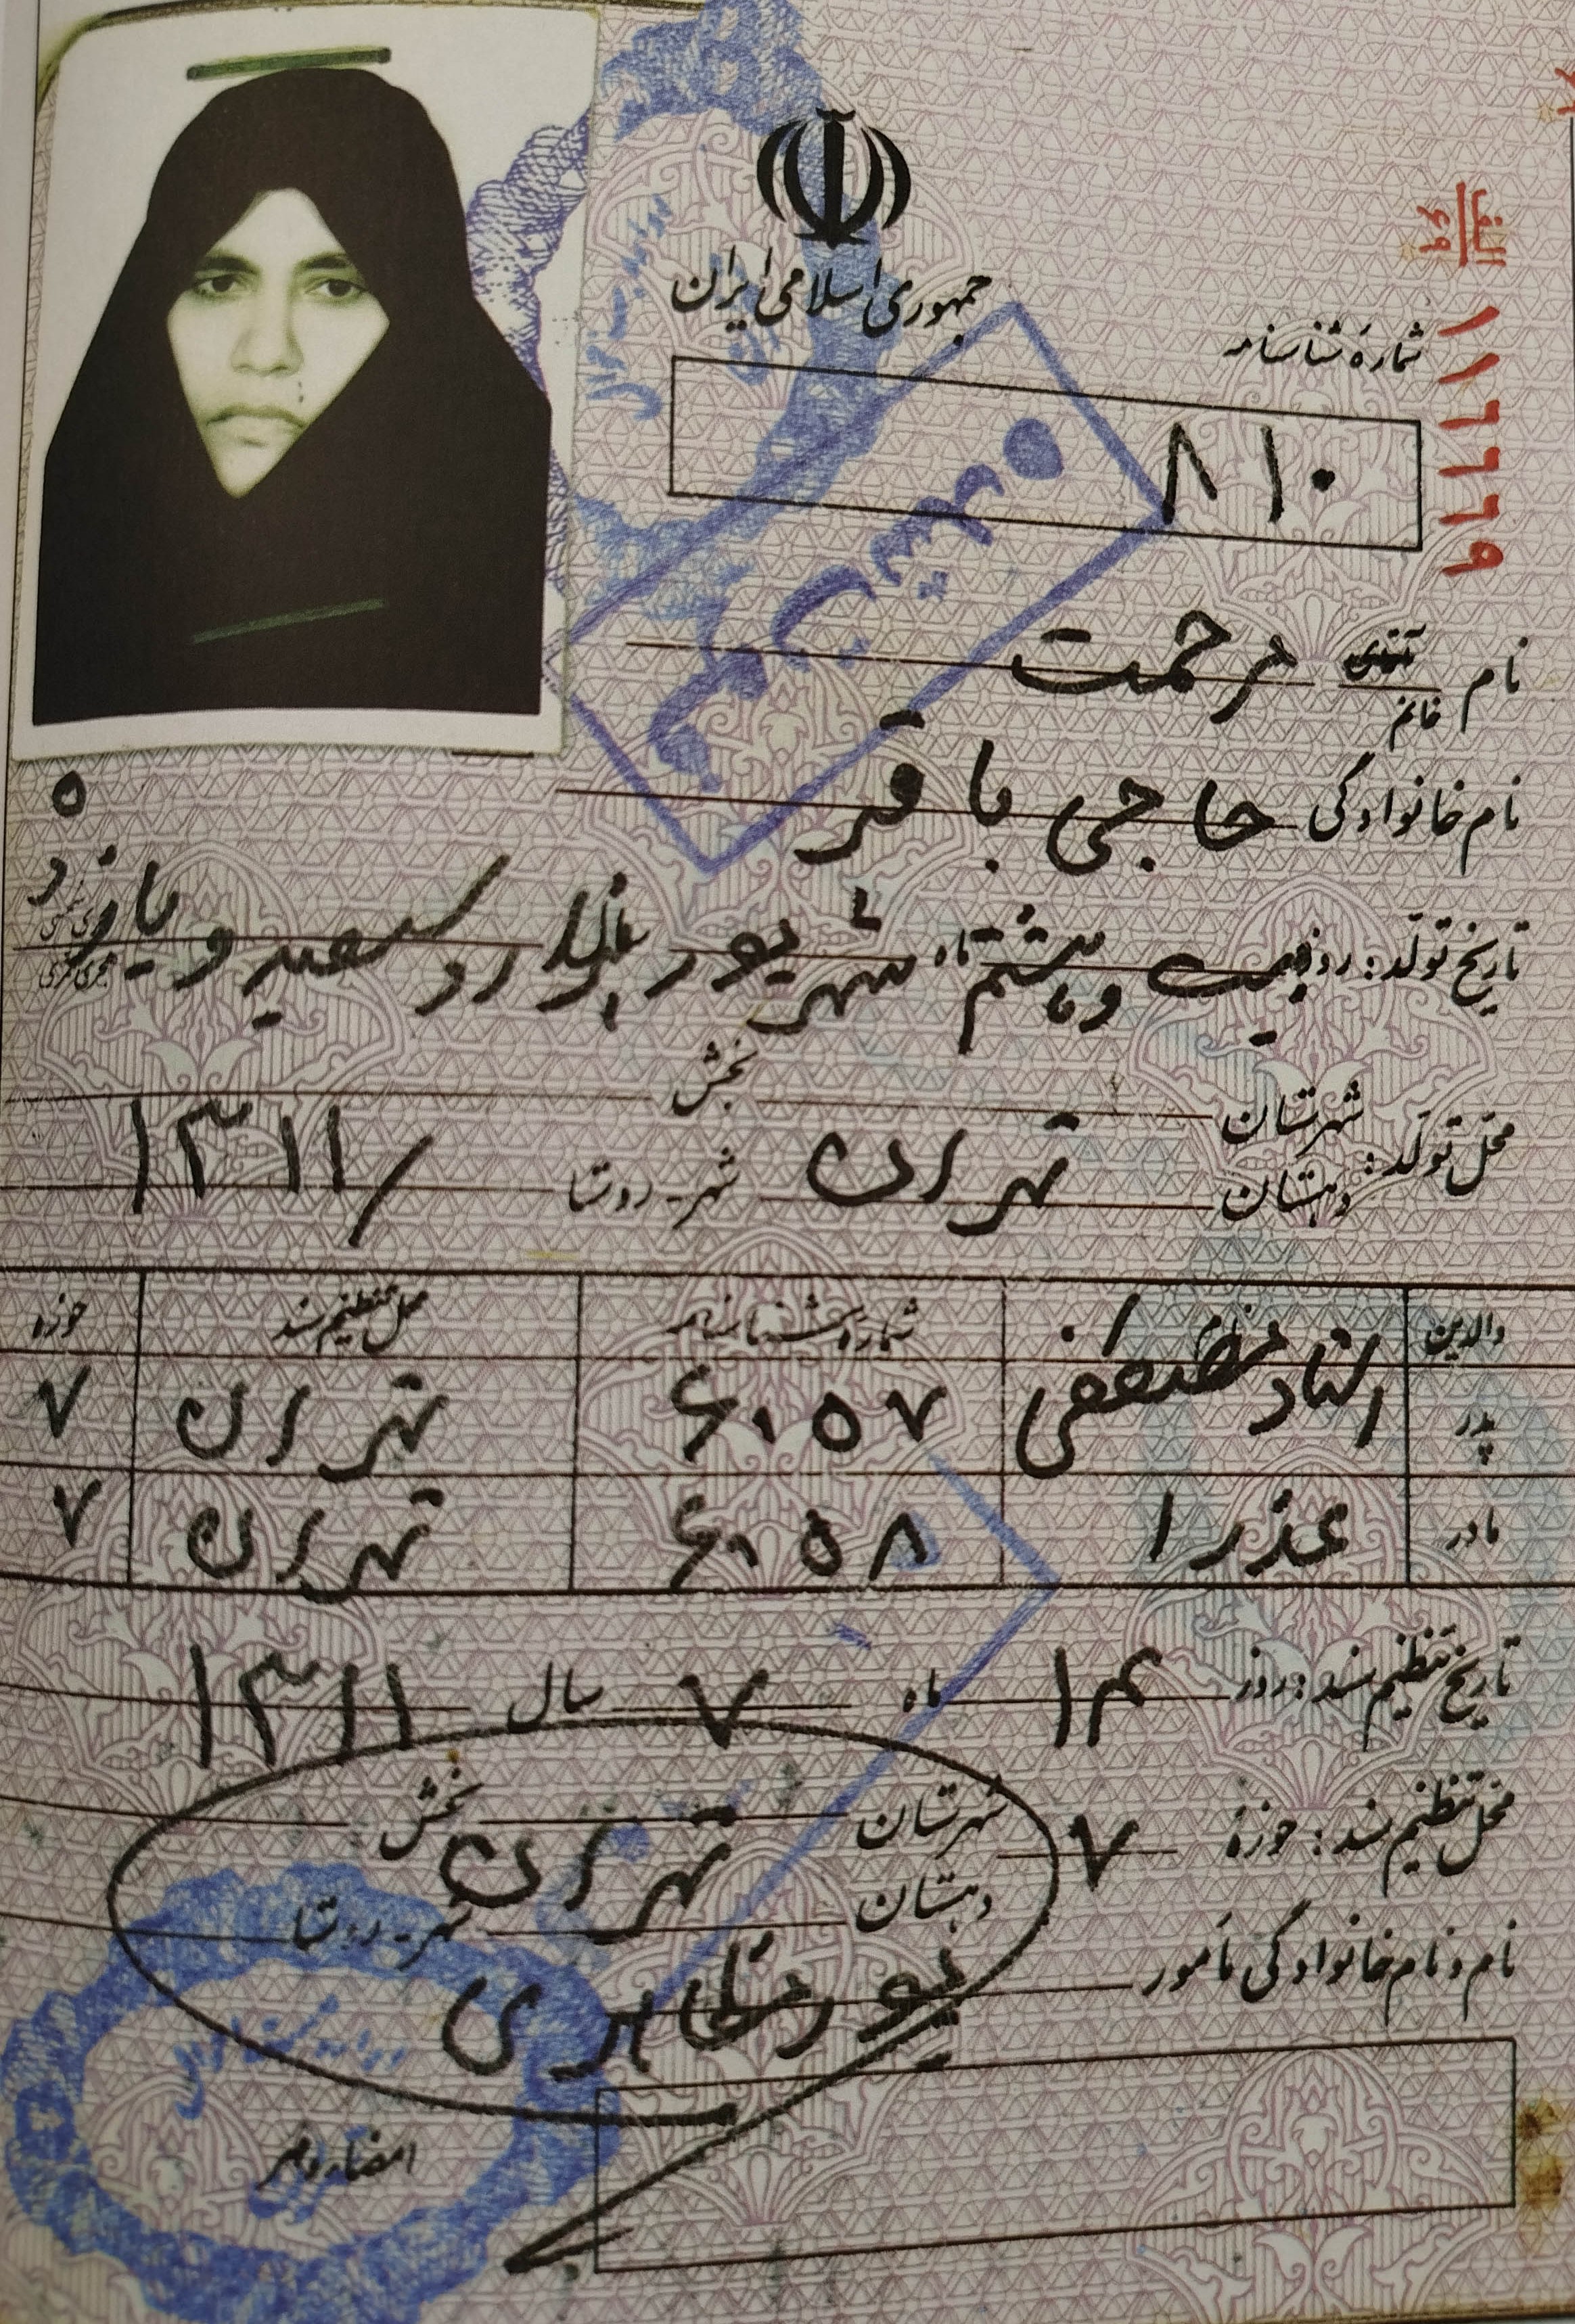 جمهوری اسلامی ایران
الف
۶۹
۱۱۶۶۶۹
شمارهٔ شناسنامه
۸۱۰
المثنی
نام خانم حرمت
نام خانوادگی حاجی باقر
تاریخ تولد: روز بیست و هشتم ماه شهریور یکهزار و سیصد و یازده
محل تولد: شهرستان تهران بخش
دهستان شهر - روستا ۱۳۱۱/
والدین شمارهٔ شناسنامه محل تنظیم سند حوزه
پدر مصطفی ۶۰۵۷ تهران ۷
مادر عذرا ۶۰۵۸ تهران ۷
تاریخ تنظیم سند: روز ۱۳ ماه ۷ سال ۱۳۱۱
محل تنظیم سند: حوزهٔ ۷ شهرستان تهران بخش
دهستان شهر - روستا
نام و نام خانوادگی مأمور
امضاء و مهر